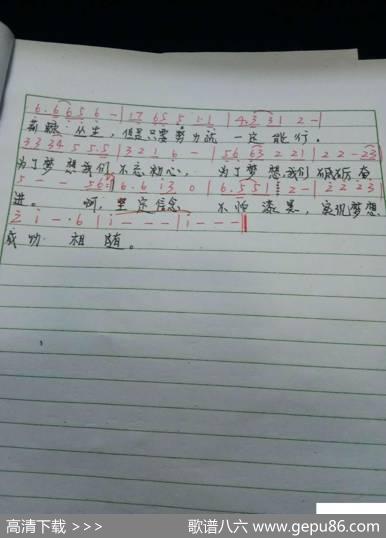 .6. 6 6 5 6 - | 1 7 6 5 5 1 1 | 4. 3 3 1 2 - |
荊棘丛生，但是只要努力就 一定能行。
3 3 3 4 5 5.5 | 3 2 1 6 - | 5 6 6 3 2 2 1 | 2 2 - - 2 3 |
为了梦想我们不忘初心， 为了梦想，我们砥砺奋
5 - - 5 6 6. 6 i 3 0 | 6. 5 5 | 2 - | 2 2 2 3 |
进。 啊，坚定信念 不怕漆黑，实现梦想
2 i - · 6 | i - - - | i - - - ||
成功 相随。
高清下载 >>> 歌谱八六 www.gepu86.com